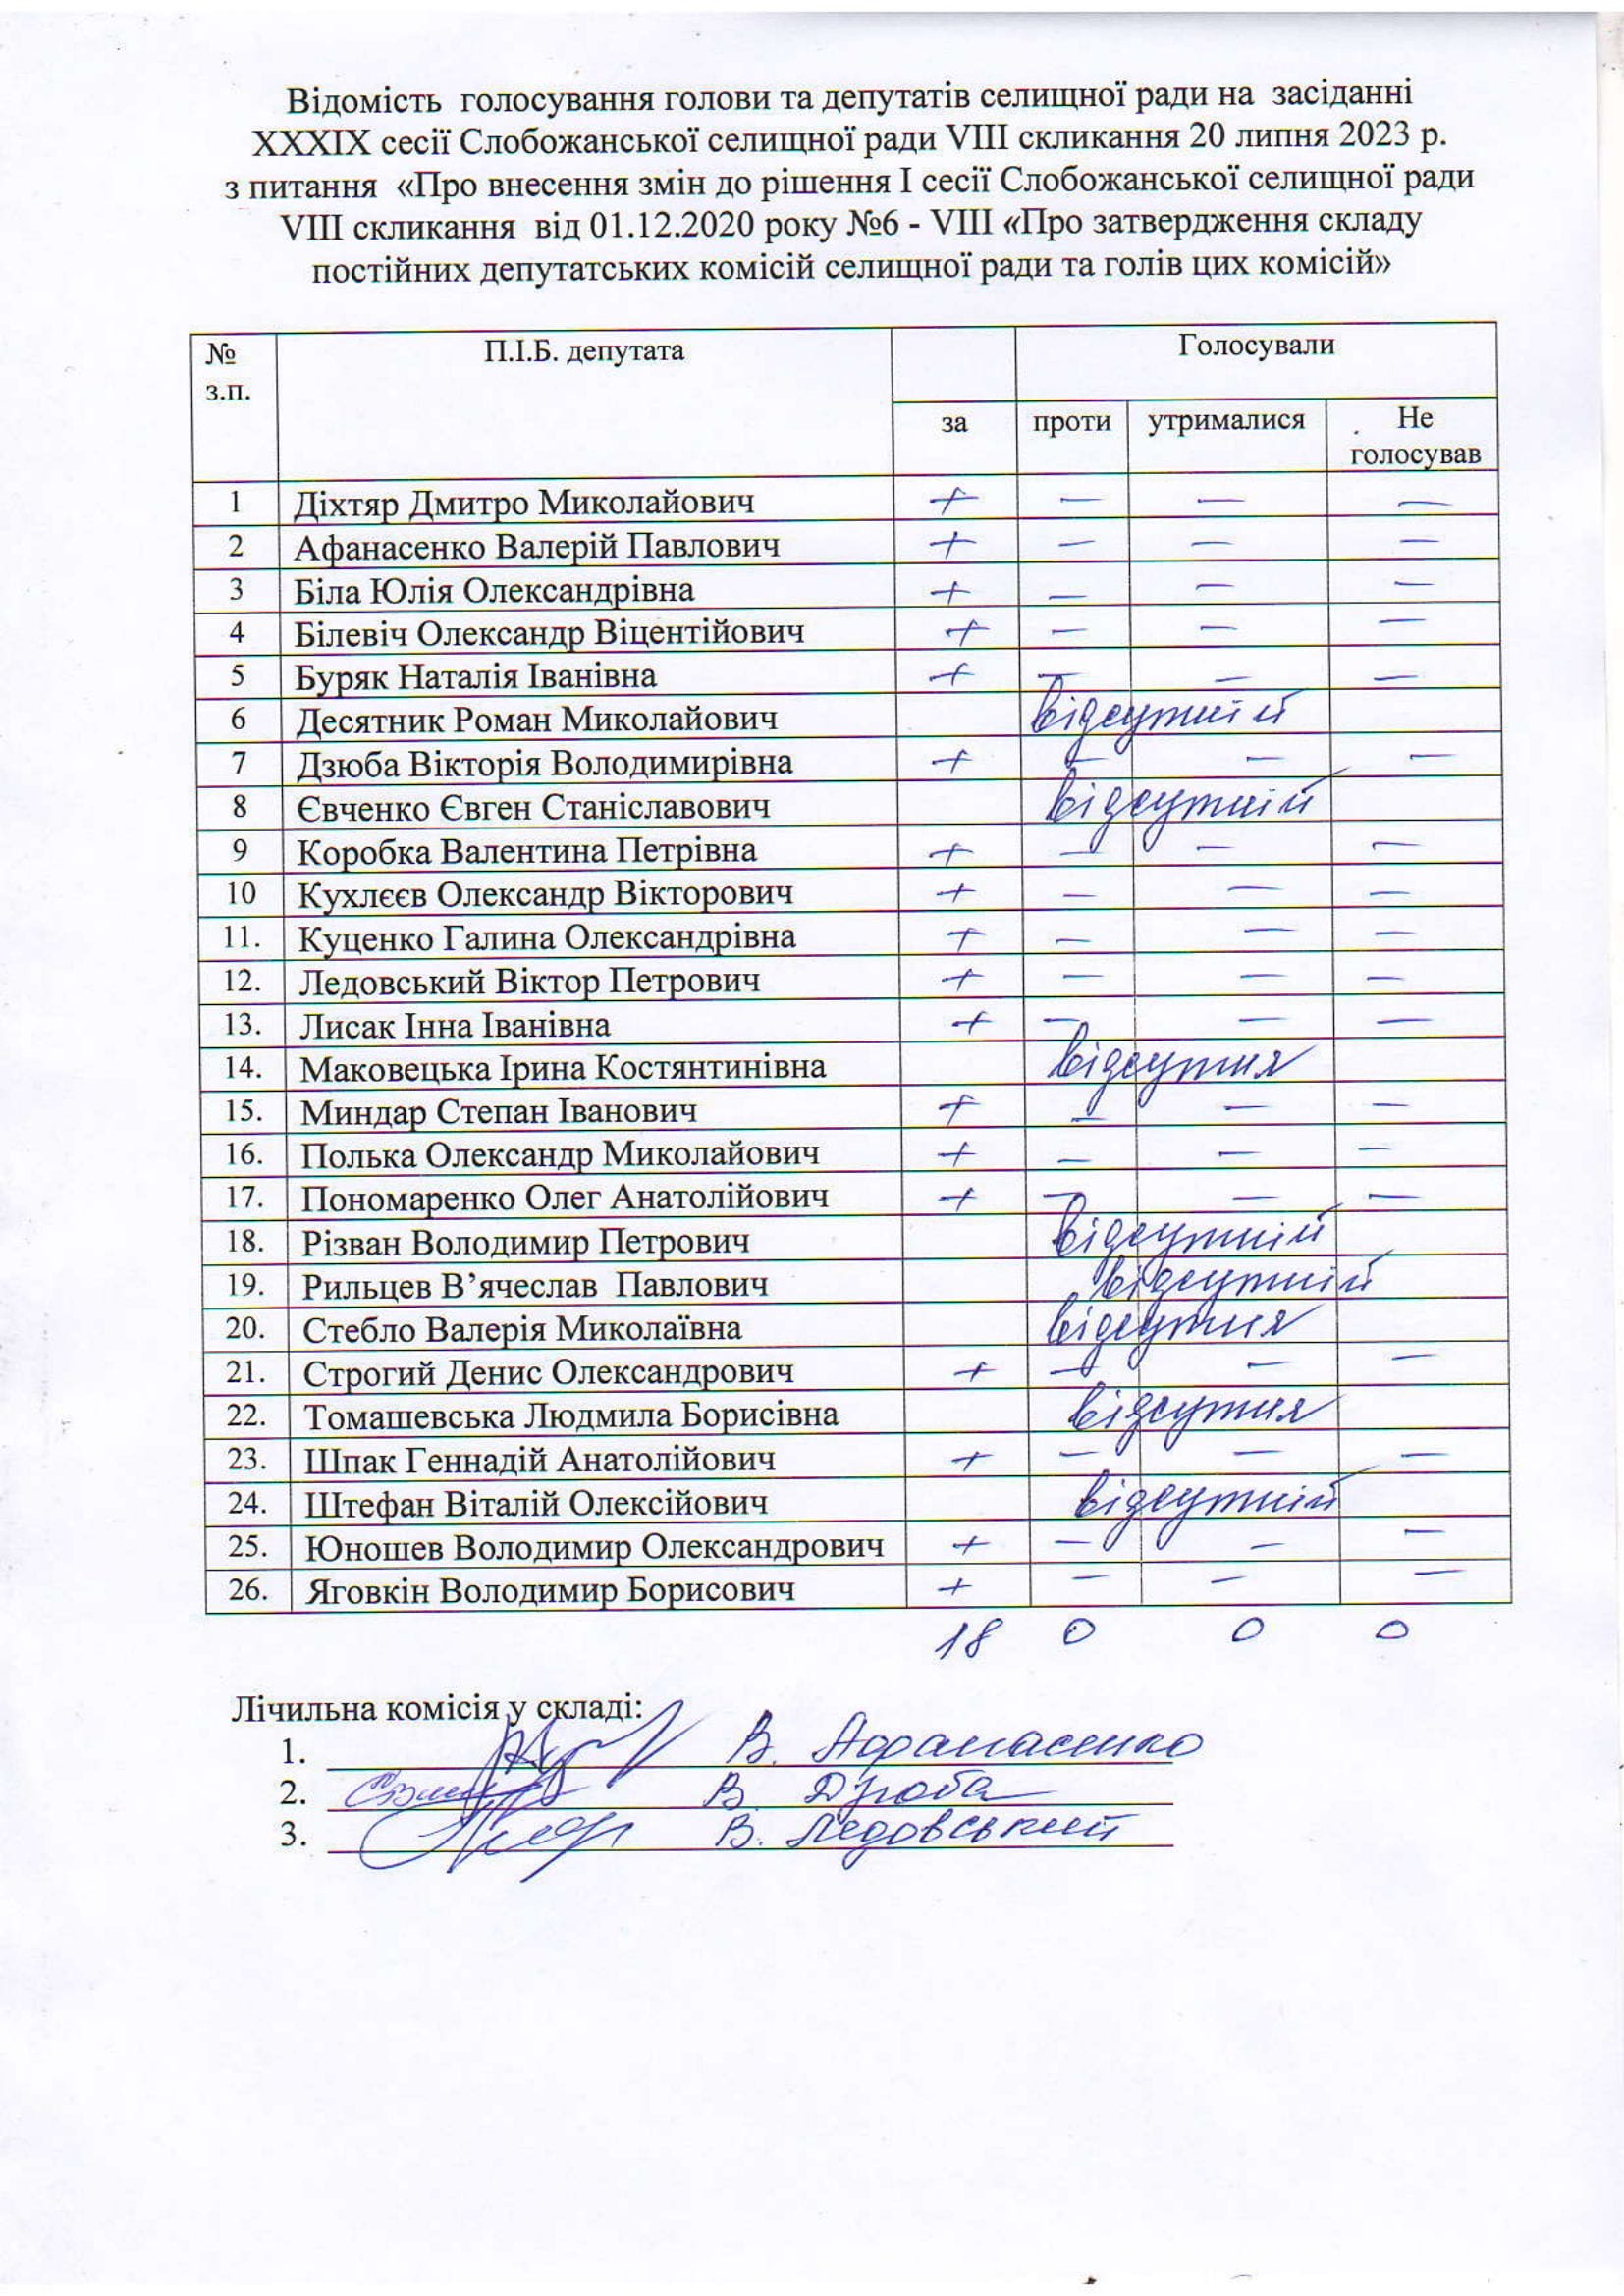 Відомість голосування голови та депутатів селищної ради на засіданні
XXXIX сесії Слобожанської селищної ради VIII скликання 20 липня 2023 р.
з питання «Про внесення змін до рішення I сесії Слобожанської селищної ради
VIII скликання від 01.12.2020 року №6 - VIII «Про затвердження складу
постійних депутатських комісій селищної ради та голів цих комісій»
№ з.п. П.І.Б. депутата Голосували
за проти утрималися Не голосував
1 Діхтяр Дмитро Миколайович + — — —
2 Афанасенко Валерій Павлович + — — —
3 Біла Юлія Олександрівна + — — —
4 Білевіч Олександр Віцентійович + — — —
5 Буряк Наталія Іванівна + — — —
6 Десятник Роман Миколайович відсутній
7 Дзюба Вікторія Володимирівна + — — —
8 Євченко Євген Станіславович відсутній
9 Коробка Валентина Петрівна + — — —
10 Кухлєєв Олександр Вікторович + — — —
11. Куценко Галина Олександрівна + — — —
12. Ледовський Віктор Петрович + — — —
13. Лисак Інна Іванівна + — — —
14. Маковецька Ірина Костянтинівна відсутня
15. Миндар Степан Іванович + — — —
16. Полька Олександр Миколайович + — — —
17. Пономаренко Олег Анатолійович + — — —
18. Різван Володимир Петрович відсутній
19. Рильцев В’ячеслав Павлович відсутній
20. Стебло Валерія Миколаївна відсутня
21. Строгий Денис Олександрович + — — —
22. Томашевська Людмила Борисівна відсутня
23. Шпак Геннадій Анатолійович + — — —
24. Штефан Віталій Олексійович відсутній
25. Юношев Володимир Олександрович + — — —
26. Яговкін Володимир Борисович + — — —
18 0 0 0
Лічильна комісія у складі:
1. В. Афанасенко
2. В. Дзюба
3. В. Ледовський